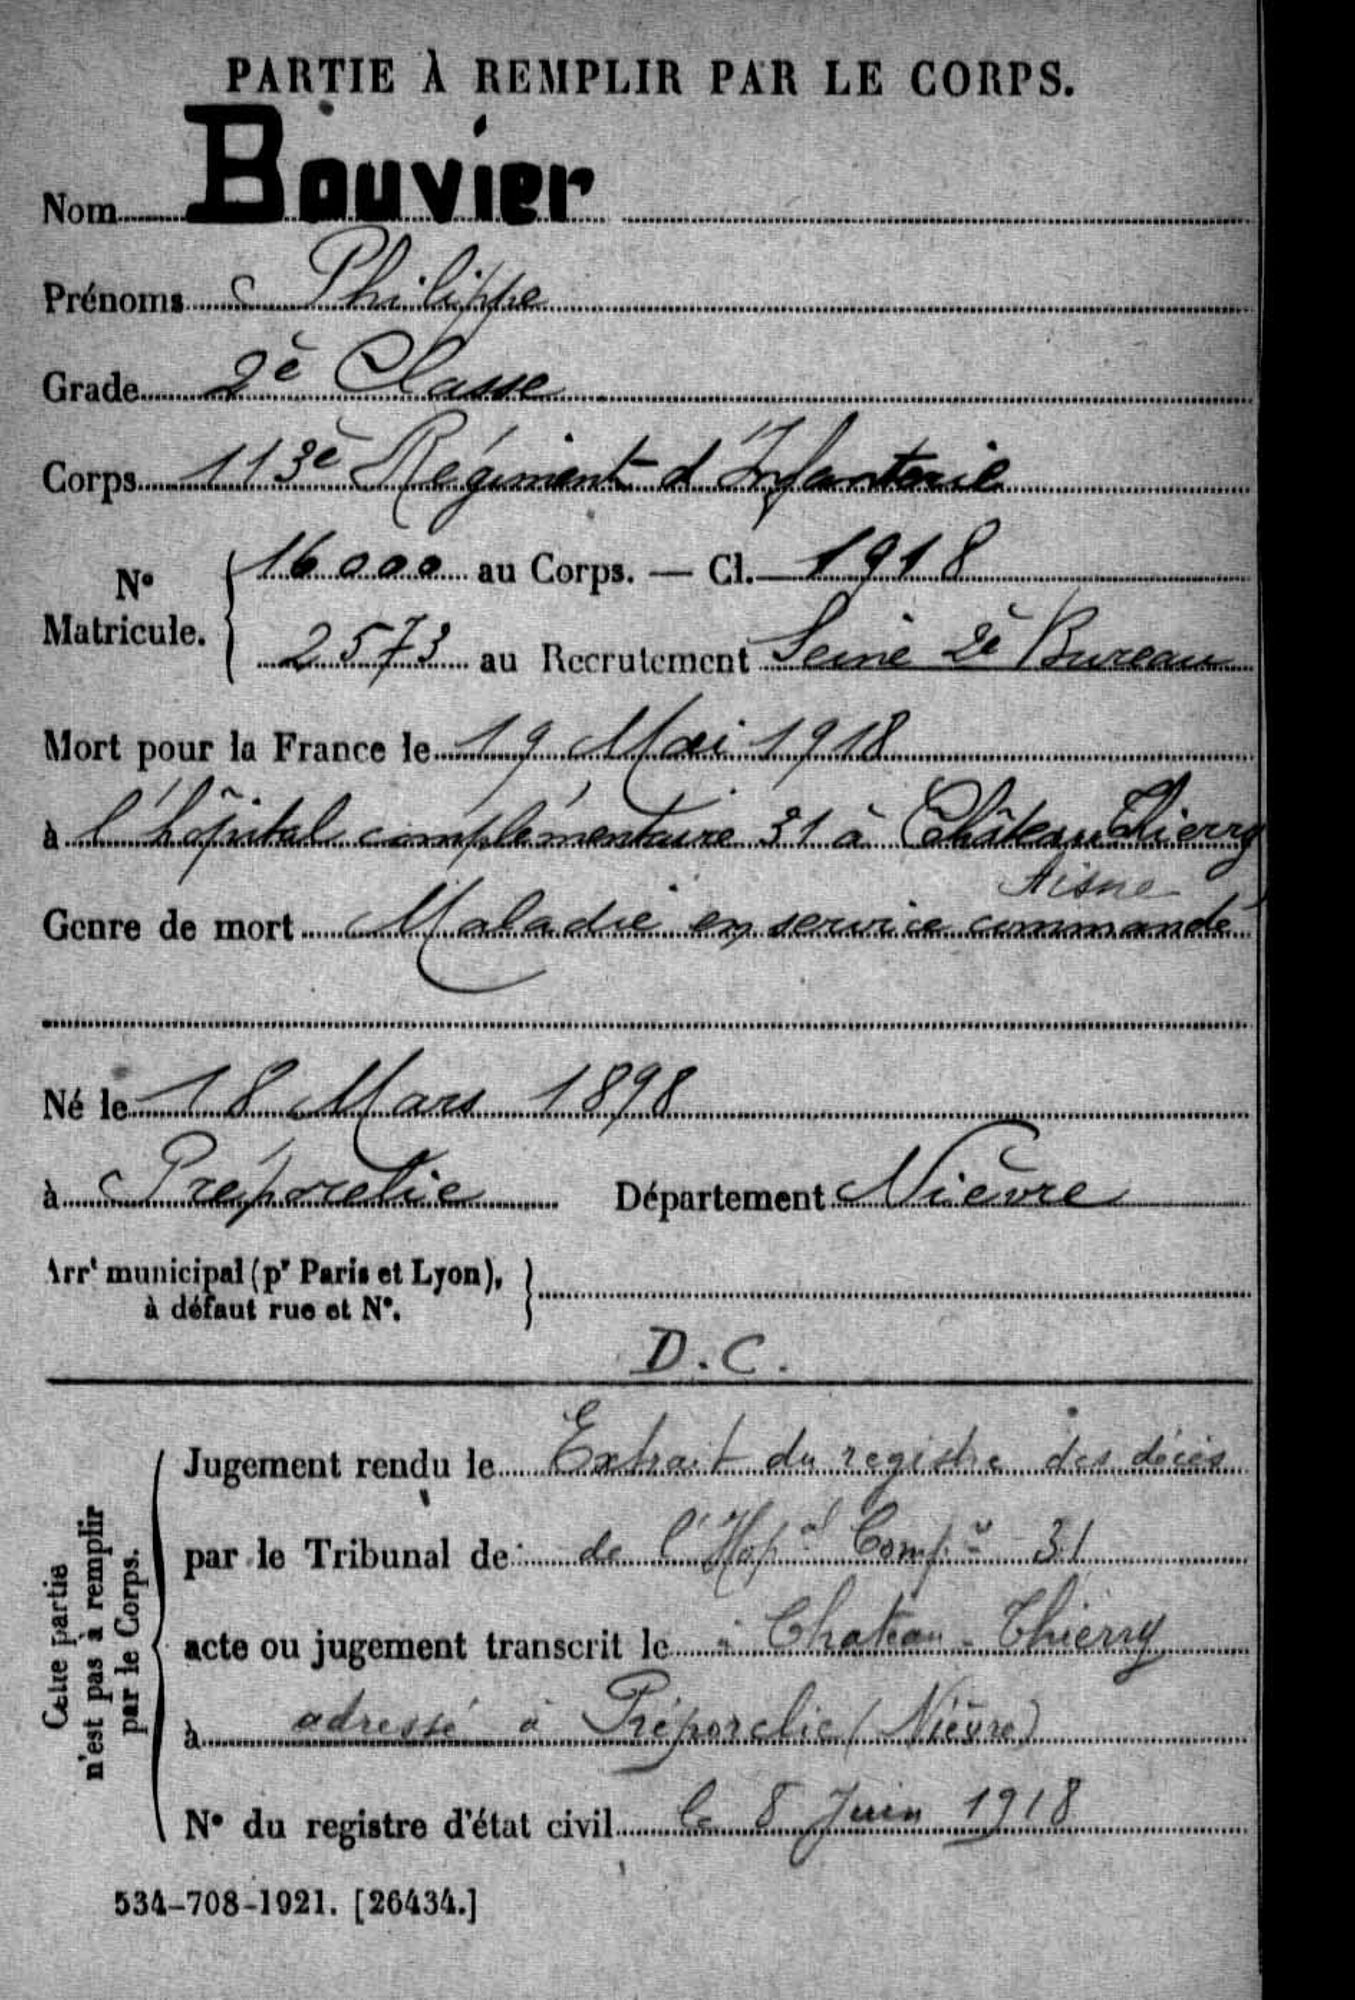 PARTIE À REMPLIR PAR LE CORPS.
Nom Bouvier
Prénoms Philippe
Grade 2è Classe
Corps 113è Régiment d'Infanterie
N° Matricule. { 16000 au Corps. — Cl. 1918
2573 au Recrutement Seine 2è Bureau
Mort pour la France le 19 Mai 1918
à l'hôpital complémentaire 31 à Château Thierry
Aisne
Genre de mort Maladie en service commandé
Né le 18 Mars 1898
à Préporelie Département Nièvre
Arrt municipal (pr Paris et Lyon), à défaut rue et N°. }
D.C.
Cette partie n'est pas à remplir par le Corps.
Jugement rendu le Extrait du registre des décès
par le Tribunal de de l'Hopal Compre 31
acte ou jugement transcrit le à Chateau-Thierry
à adressé à Préporclic (Nièvre)
N° du registre d'état civil le 8 Juin 1918
534-708-1921. [26434.]